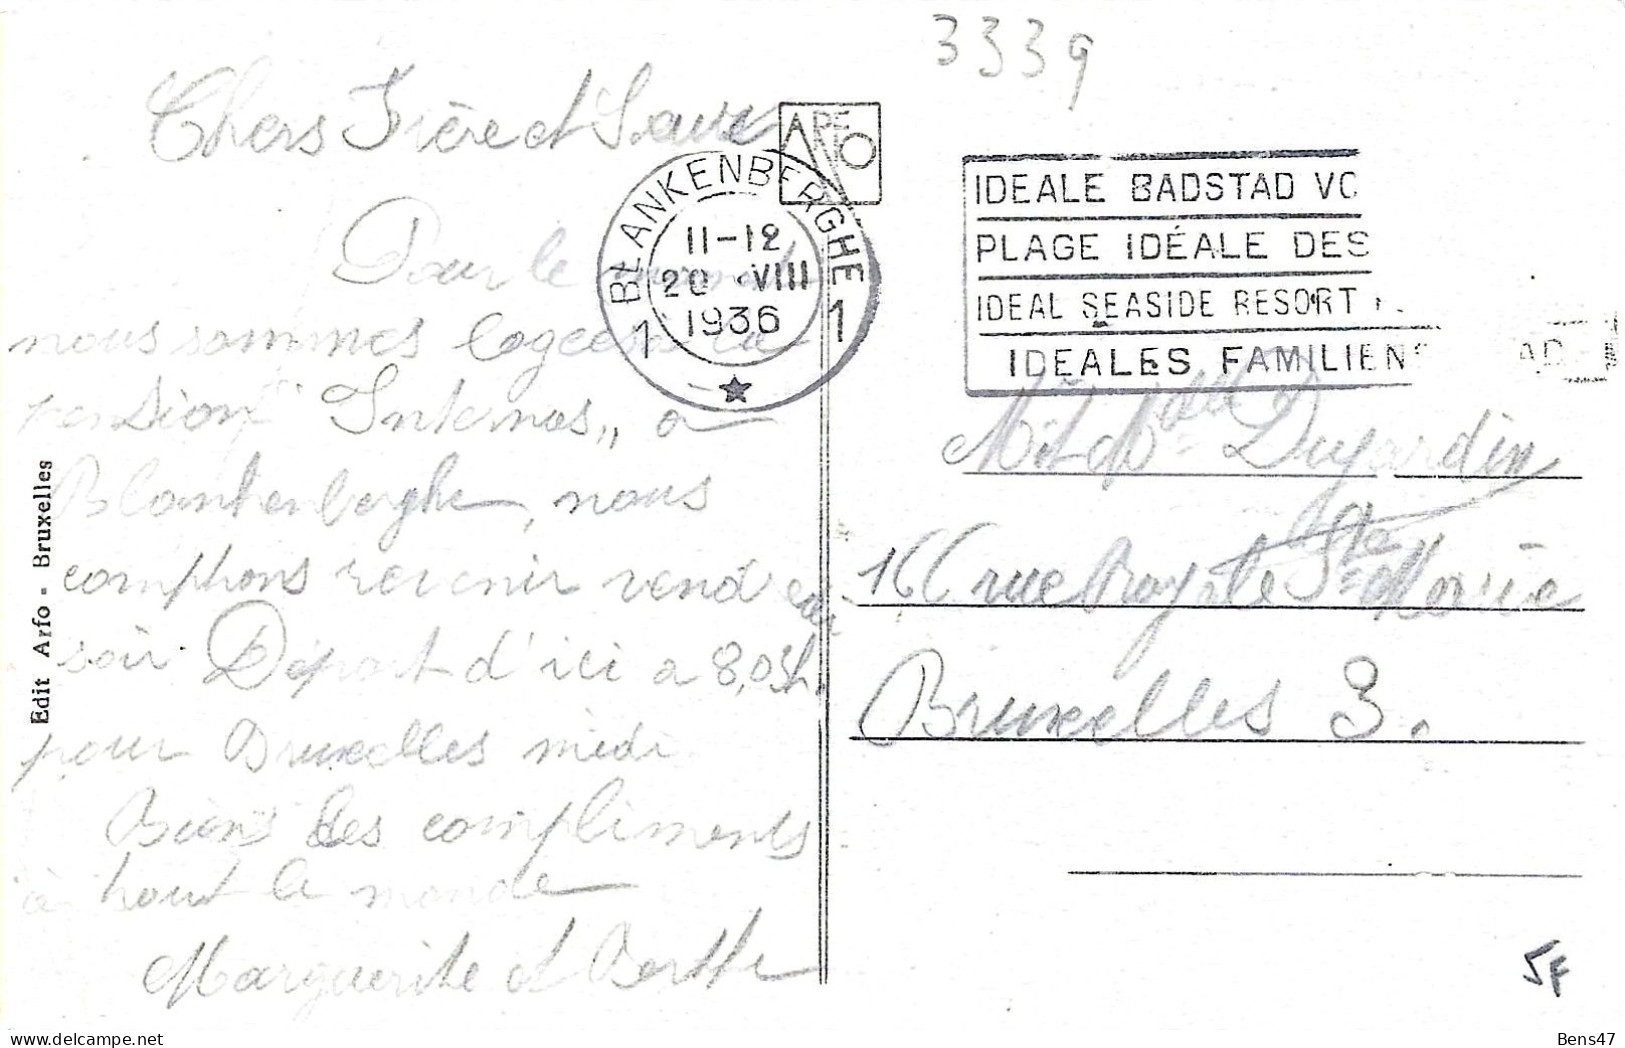 3339
Chers Frère et Sœur
ARFO
Pour le moment
nous sommes logées a la
pension "Internos" a
Blankenberghe, nous
comptons revenir vendredi
soir Départ d'ici a 8,05h.
pour Bruxelles midi
Biens des compliments
à tout le monde
Marguerite et Berthe
Edit Arfo - Bruxelles
1 BLANKENBERGHE 1
11-12
20 VIII
1936
IDEALE BADSTAD VO
PLAGE IDÉALE DES
IDEAL SEASIDE RESORT
IDEALES FAMILIEN AD
M et Mme Dujardin
166 rue Royale Ste Marie
Bruxelles 3.
5F
Bens47